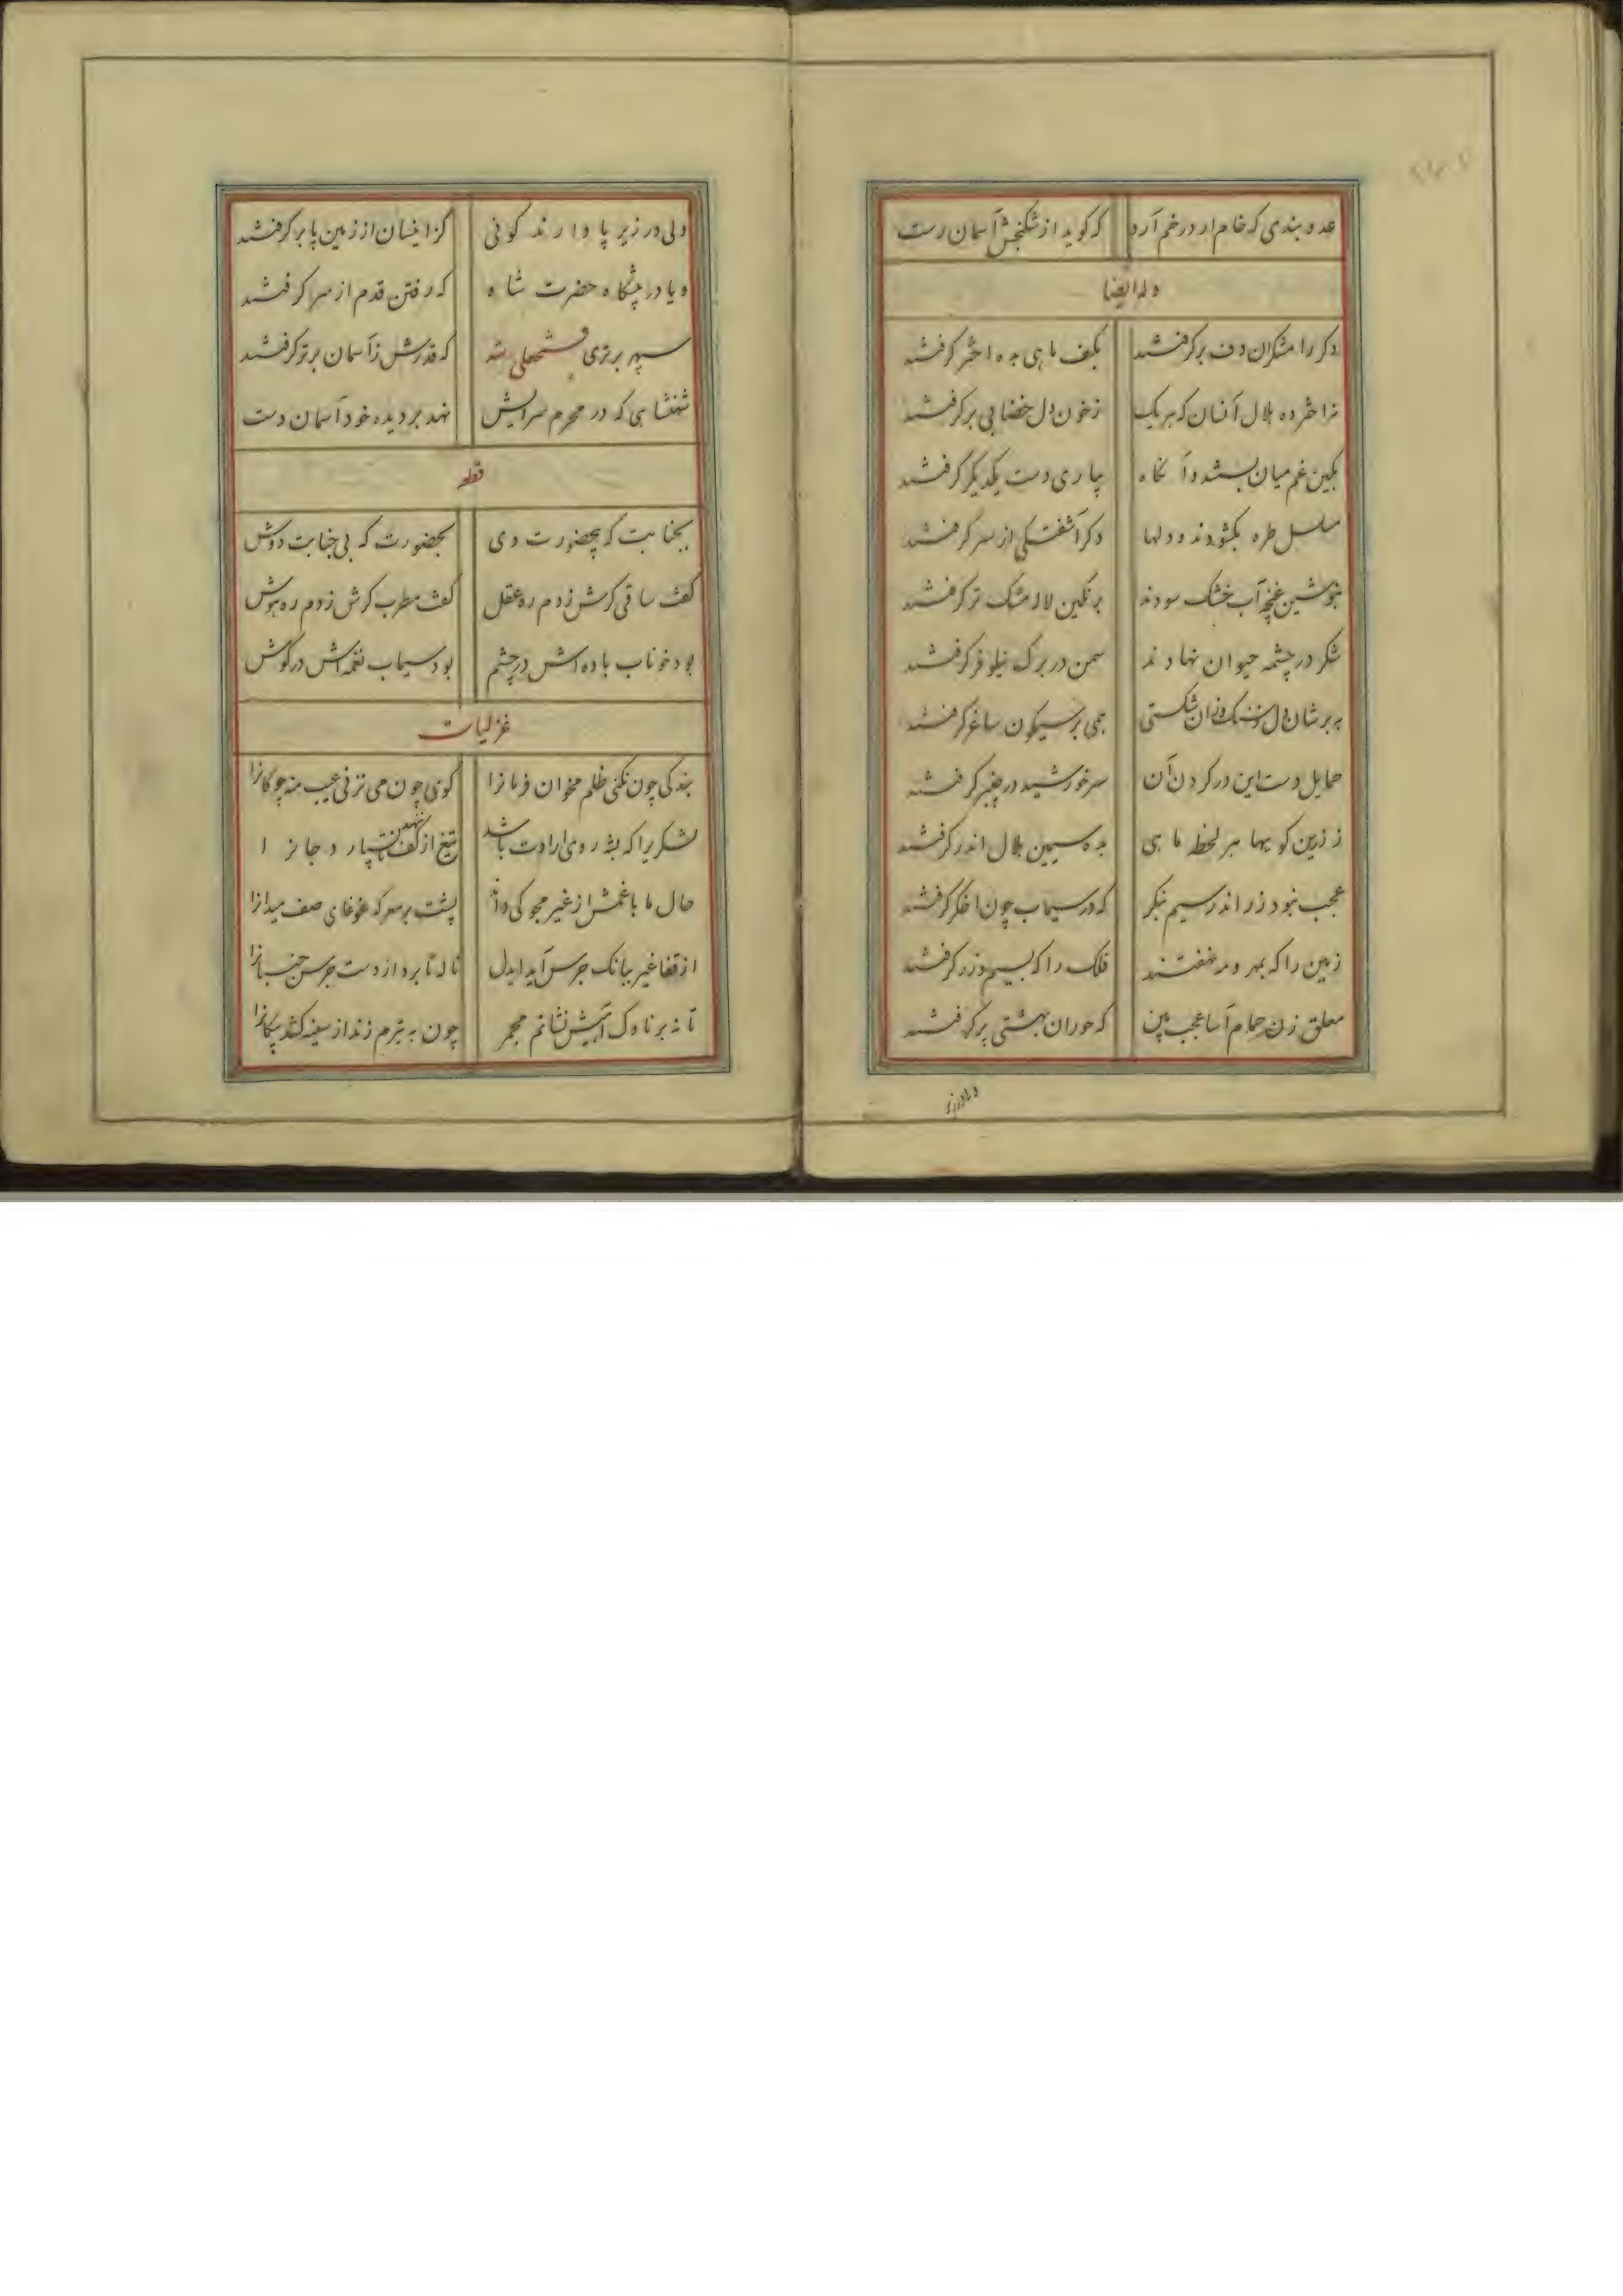 عدو بندی که خام ار در خم آرد که کوید از شکنجش آسمان رست
وله ایضا
دکر رامشکران دف برکرفتند بکف ماهی بده اختر کرفتند
ز اختر ده هلال آنسان که هر یک ز خون دل خضابی بر کرفتند
بکین غم میان بستند و آنکاه بیاری دست یکدیکر کرفتند
مسلسل طره بکشودند و دلها دکر آشفتکی از سر کرفتند
بنوشین غنچه آب خشک سودند برنکین لاله مشک تر کرفتند
شکر در چشمه حیوان نهادند سمن در برک نیلوفر کرفتند
به بر شان دل سنک وزان شکستی همی بر سیمکون ساغر کرفتند
حمایل دست این در کردن آن سر خورشید در چنبر کرفتند
ز زرین کویها هر لحظه ماهی بده سیمین هلال اندر کرفتند
عجب نبود زر اندر سیم بنکر که در سیماب چون اخکر کرفتند
زمین را که بمهر و مه نهفتند فلک را که بسیم و زر کرفتند
معلق زن حمام آسا عجب بین که حوران بهشتی پر کرفتند
ولی در زیر پا دارند کوئی کز اینسان از زمین پا بر کرفتند
و یا در پیشکاه حضرت شاه که رفتن قدم از سر کرفتند
سپهر برتری فتحعلی شه که قدرش ز آسمان برتر کرفتند
شهنشاهی که در محرم سرایش نهد بر دیده خود آسمان دست
قطعه
بجنابت که بیحضورت دی بحضورت که بی جنابت دوش
کفت ساقی کرش زدم ره عقل کفت مطرب کرش زدم ره هوش
بود خوناب باده اش در چشم بود سیماب نغمه اش در کوش
غزلیات
بندکی چون نکنی ظلم مخوان فرمانرا کوی چون می نزنی عیب منه چوکانرا
لشکریرا که نه روی ارادت باشد تیغ از کف ننهد تا نسپارد جانرا
حال ما با غمش از غیر مجو کی داند پشت بر معرکه غوغای صف میدانرا
از قفا غیر ببانک جرس آید ایدل ناله تا برد از دست جرس جنبانرا
تا نه بر ناوک آهیش نشانم مجمر چون به تیرم زند از سینه کشد پیکانرا